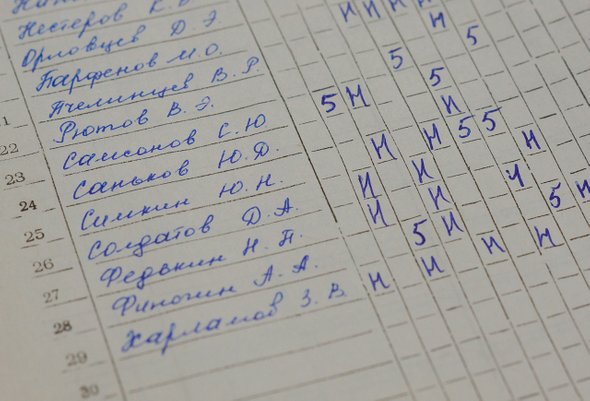 Нестеров К.
Орловцев Д. Э. Н Н Н Н
Парфенов М. О. Н
Пчелинцев В. Р. 5 5
21 Рютов В. Э. 5
22 Самсонов С. Ю 5 Н Н
23 Саньков Ю. Д. Н Н 5 5
24 Симкин Ю. Н. Н Н Н
25 Солдатов Д. А. Н Н Ч
26 Федькин Н. П. 5 Н 5 Н
27 Финогин А. А. Н Н
28 Харламов З. В. Н Н
29
30